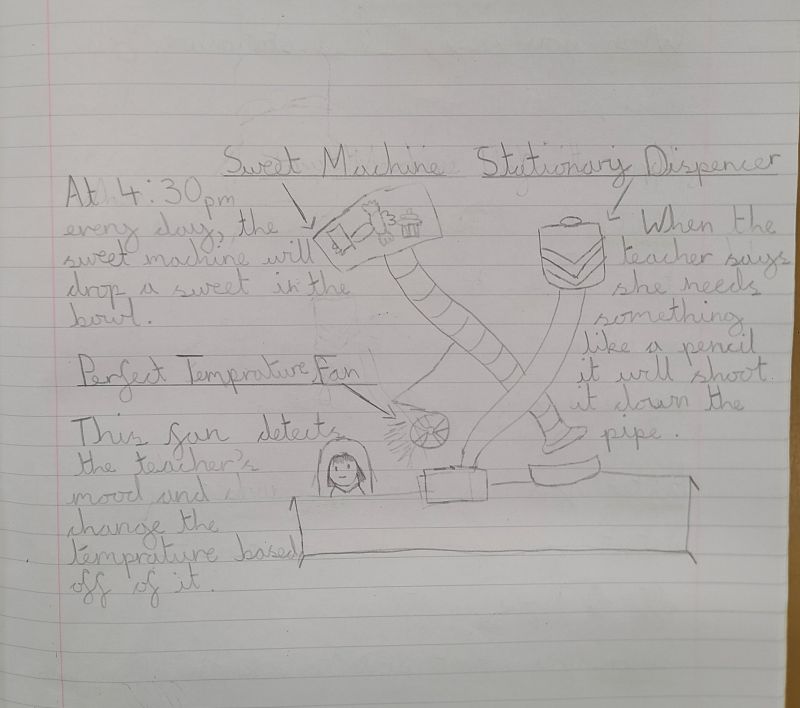 Sweet Machine
At 4:30pm
every day, the
sweet machine will
drop a sweet in the
bowl.
Stationary Dispencer
When the
teacher says
she needs
something
like a pencil
it will shoot
it down the
pipe.
Perfect Temprature Fan
This fan detects
the teacher's
mood and
change the
temprature based
off of it.